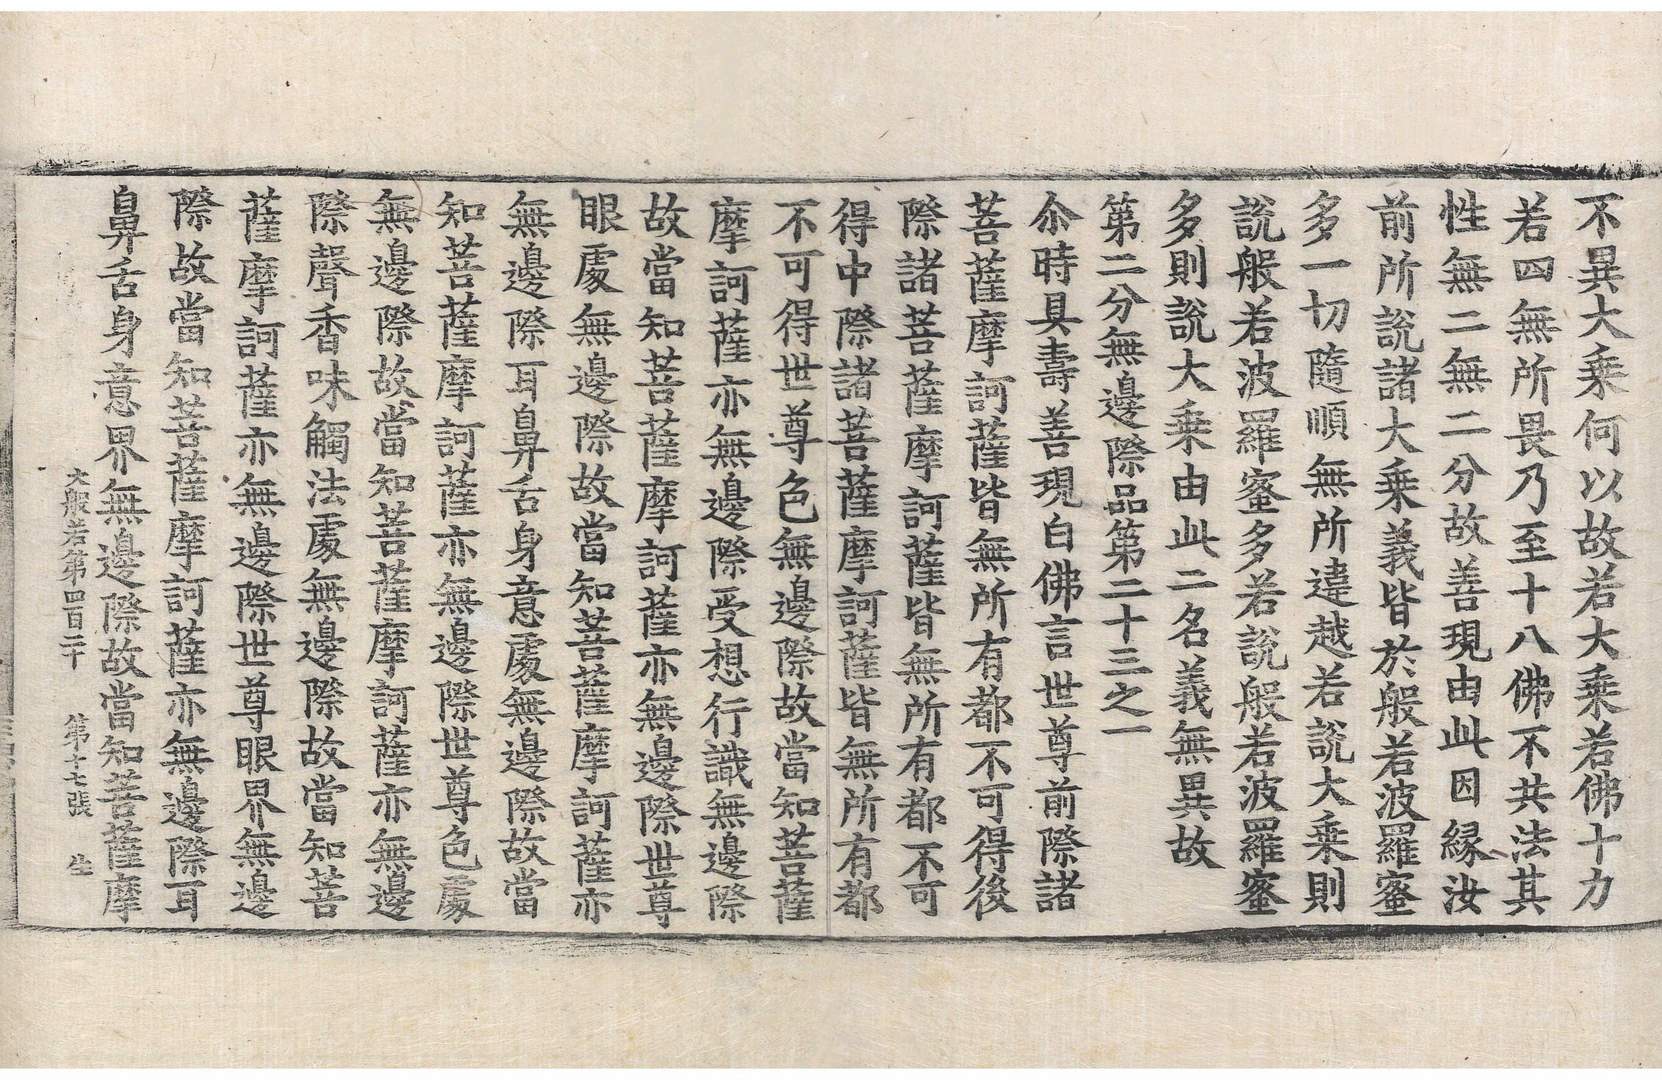 不異大乘何以故若大乘若佛十力
若四無所畏乃至十八佛不共法其
性無二無二分故善現由此因緣汝
前所說諸大乘義皆於般若波羅蜜
多一切隨順無所違越若說大乘則
說般若波羅蜜多若說般若波羅蜜
多則說大乘由此二名義無異故
第二分無邊際品第二十三之一
尒時具壽善現白佛言世尊前際諸
菩薩摩訶薩皆無所有都不可得後
際諸菩薩摩訶薩皆無所有都不可
得中際諸菩薩摩訶薩皆無所有都
不可得世尊色無邊際故當知菩薩
摩訶薩亦無邊際受想行識無邊際
故當知菩薩摩訶薩亦無邊際世尊
眼處無邊際故當知菩薩摩訶薩亦
無邊際耳鼻舌身意處無邊際故當
知菩薩摩訶薩亦無邊際世尊色處
無邊際故當知菩薩摩訶薩亦無邊
際聲香味觸法處無邊際故當知菩
薩摩訶薩亦無邊際世尊眼界無邊
際故當知菩薩摩訶薩亦無邊際耳
鼻舌身意界無邊際故當知菩薩摩
大般若第四百二十 第十七張 生